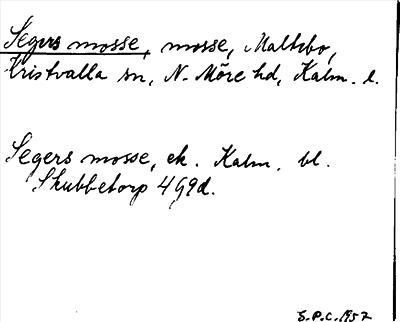 Segers mosse, mosse, Maltebo,
Kristvalla sn, N. Möre hd, Kalm. l.
Segers mosse, ek. Kalm. bl.
Skubbetorp 4G9d.
S.P.C. 1957